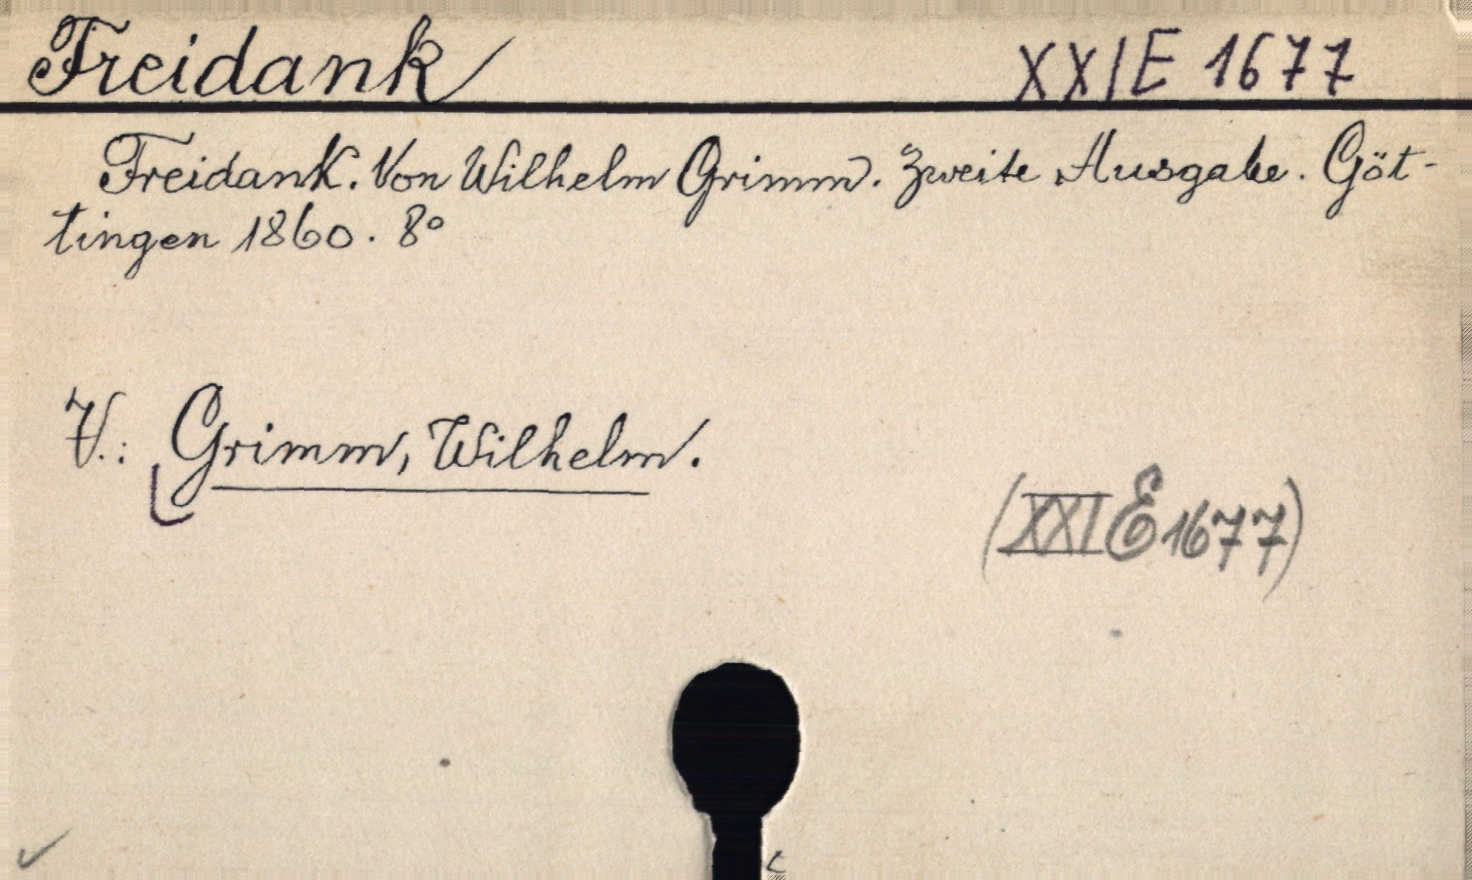 Freidank
XXI E 1677
Freidank. Von Wilhelm Grimm. Zweite Ausgabe. Göt-
tingen 1860. 8°
V.: Grimm, Wilhelm.
(XXI E 1677)